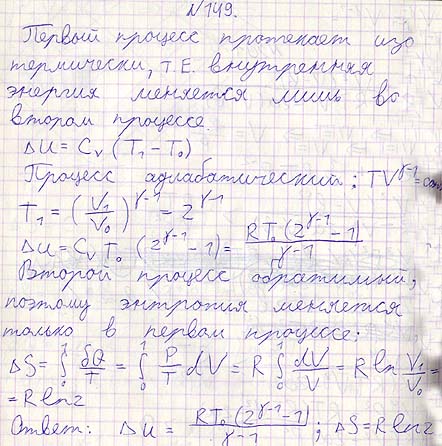 №149.
Первый процесс протекает изо
термически, т.е. внутренняя
энергия меняется лишь во
втором процессе.
ΔU = C_V (T₁ - T₀)
Процесс адиабатический; TV^{γ-1} = const
T₁ = (V₁/V₀)^{γ-1} = 2^{γ-1}
ΔU = C_V T₀ (2^{γ-1} - 1) = RT₀ (2^{γ-1} - 1)/(γ-1)
Второй процесс обратимый,
поэтому энтропия меняется
только в первом процессе:
ΔS = ∫₀¹ δQ/T = ∫₀¹ P/T dV = R ∫₀¹ dV/V = R ln V₁/V₀ =
= R ln 2
Ответ: ΔU = RT₀ (2^{γ-1} - 1)/(γ-1) ; ΔS = R ln 2